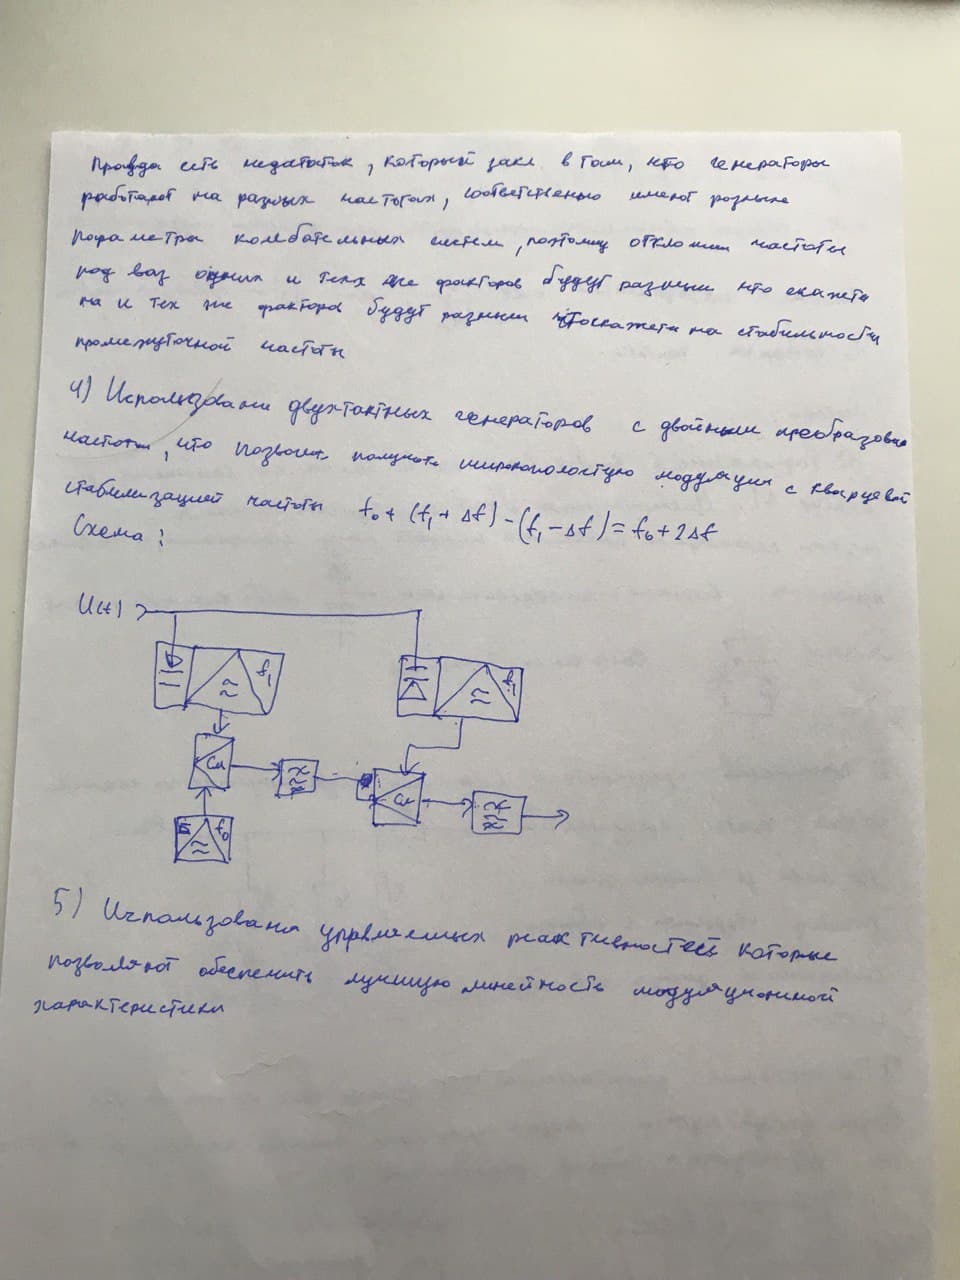 Правда есть недостаток, который закл. в том, что генераторы
работают на разных частотах, соответственно имеют разные
параметры колебательных систем, поэтому отклонения частоты
под воз одних и тех же факторов будут разными что скажется
на и тех же факторов будут разными что скажется на стабильности
промежуточной частоты
4) Использовани двухтактных генераторов с двойным преобразован
частоты, что позволит получать широкополостую модуляцию с кварцевой
стабилизацией частоты f₀ + (f₁ + Δf) - (f₁ - Δf) = f₀ + 2Δf
Схема:
U(t)
f₁ f₁
См
См
f₀
5) Использования управляемых реактивностей которые
позволяют обеспечить лучшую линейность модуляционной
характеристики